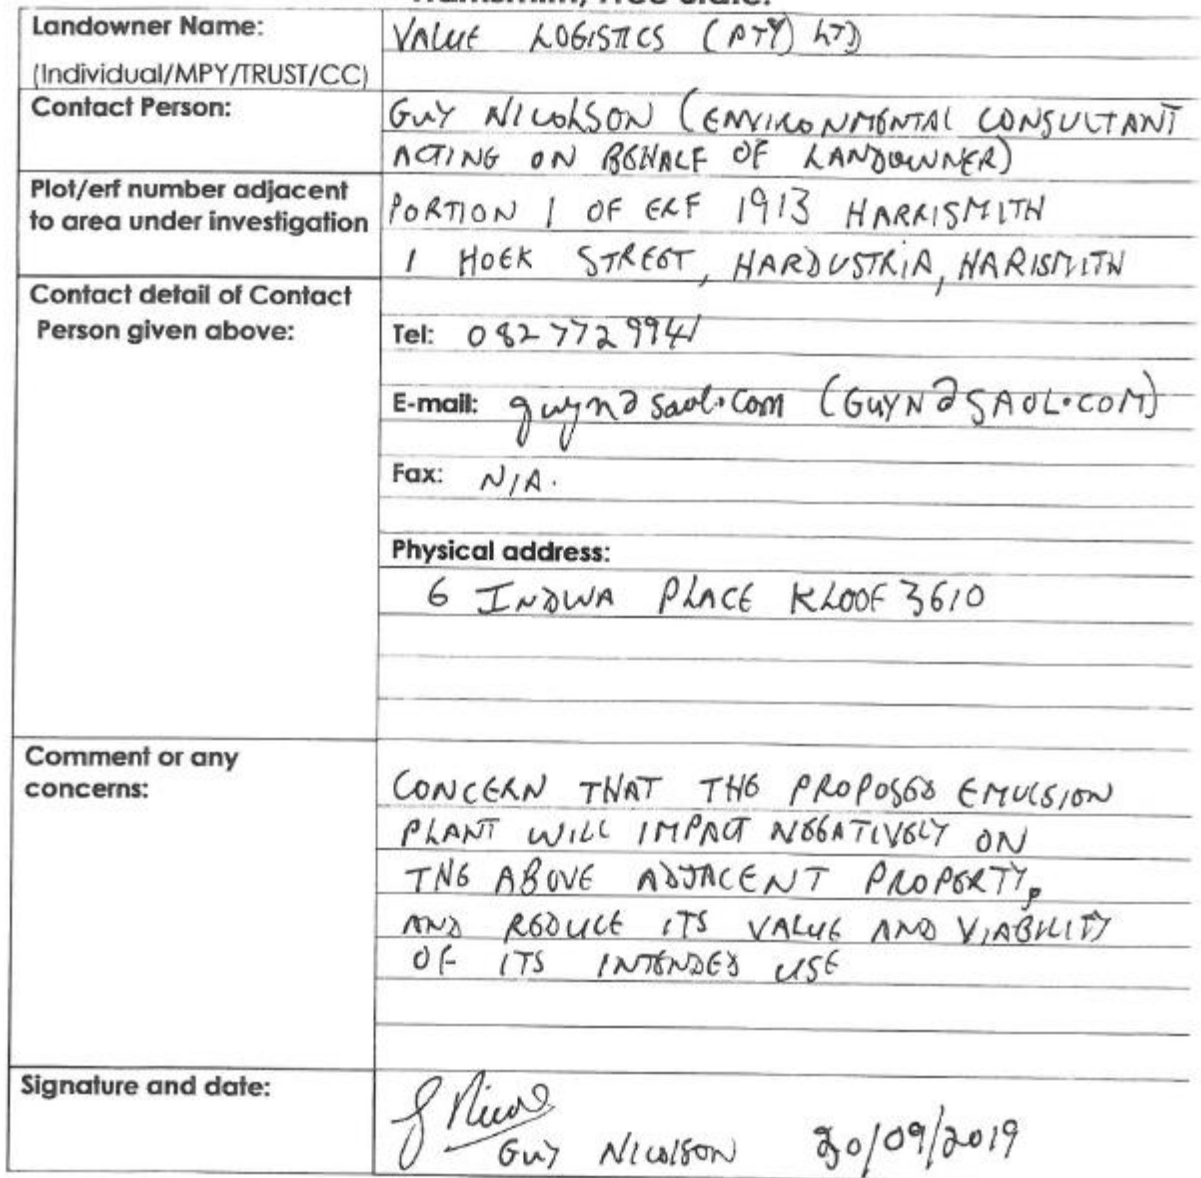 Landowner Name:
VALUE LOGISTICS (PTY) LTD
(Individual/MPY/TRUST/CC)
Contact Person:
GUY NICOLSON (ENVIRONMENTAL CONSULTANT
ACTING ON BEHALF OF LANDOWNER)
Plot/erf number adjacent
to area under investigation
PORTION 1 OF ERF 1913 HARRISMITH
1 HOEK STREET, HARDUSTRIA, HARISMITH
Contact detail of Contact
Person given above:
Tel: 082 772 9941
E-mail: guyn@saol.com (GUYN@SAOL.COM)
Fax: N/A.
Physical address:
6 INDWA PLACE KLOOF 3610
Comment or any
concerns:
CONCERN THAT THE PROPOSED EMULSION
PLANT WILL IMPACT NEGATIVELY ON
THE ABOVE ADJACENT PROPERTY,
AND REDUCE ITS VALUE AND VIABILITY
OF ITS INTENDED USE
Signature and date:
GUY NICOLSON /09/2019